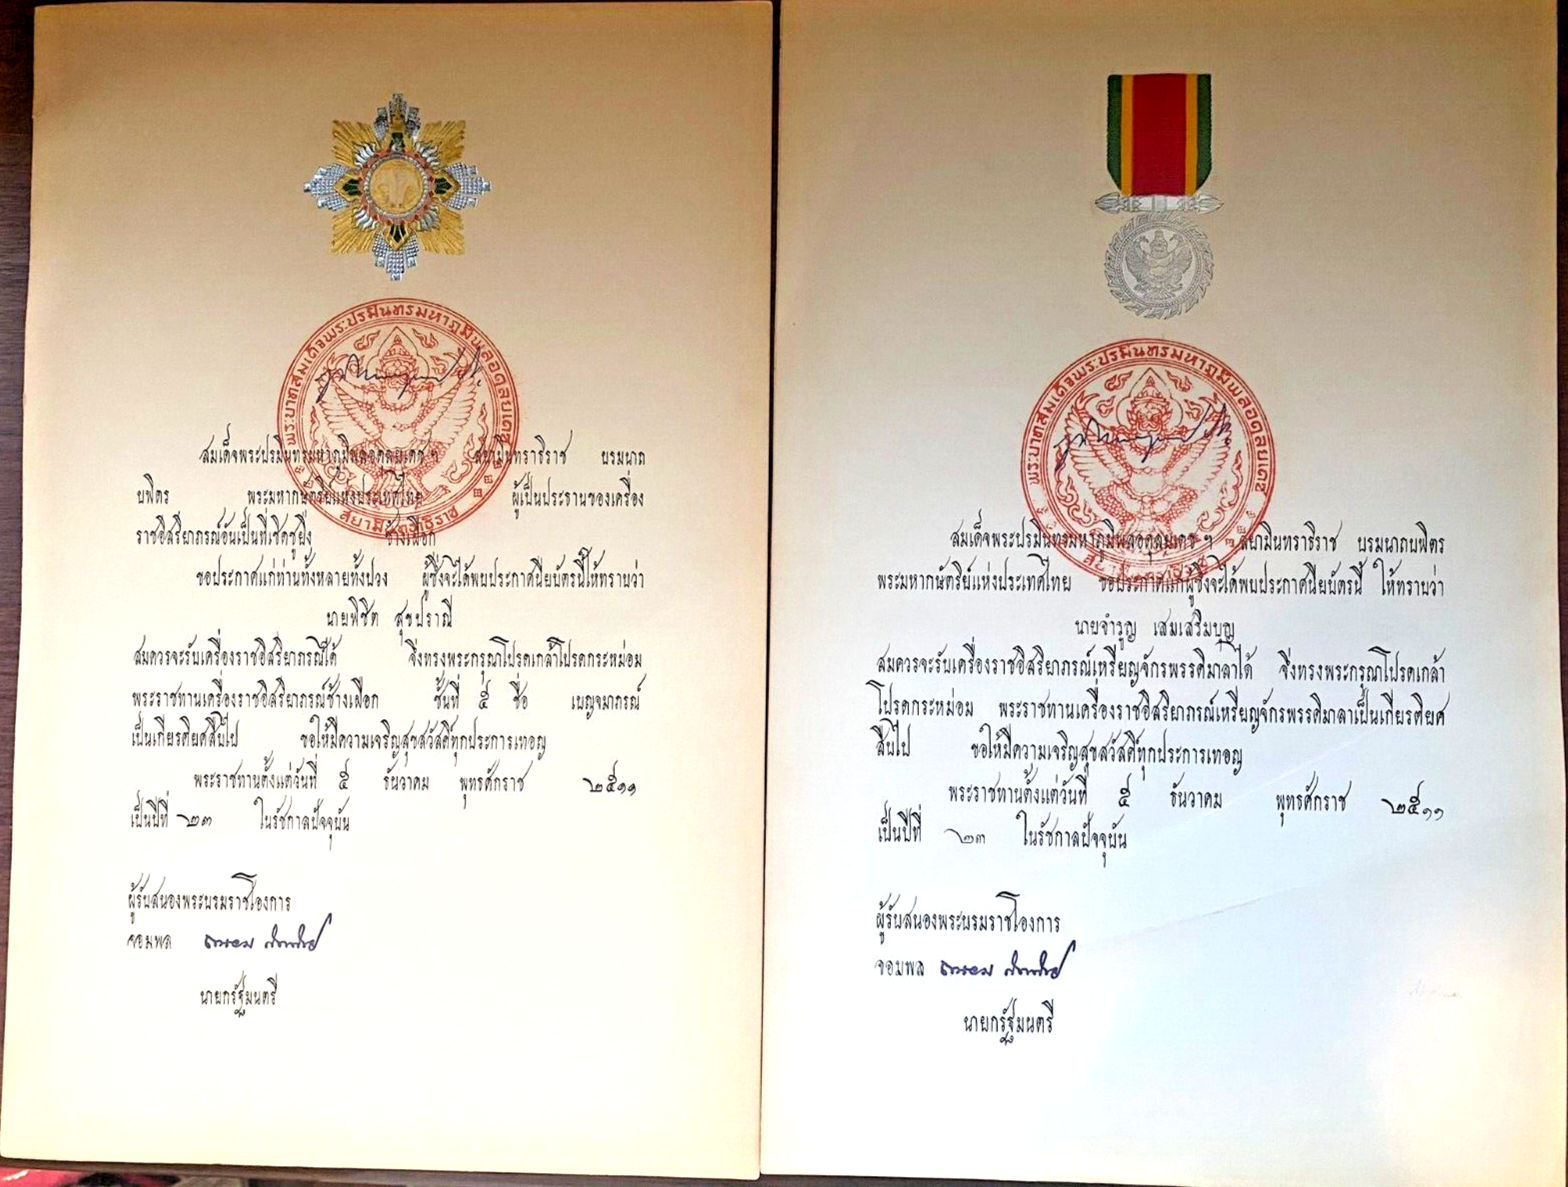 พระบาทสมเด็จพระปรมินทรมหาภูมิพลอดุลยเดช
สยามินทราธิราช
สมเด็จพระปรมินทรมหาภูมิพลอดุลยเดช ฯ สยามินทราธิราช บรมนาถ
บพิตร พระมหากษัตริย์แห่งประเทศไทย ผู้เป็นประธานของเครื่อง
ราชอิสริยาภรณ์อันเป็นที่เชิดชูยิ่ง ช้างเผือก
ขอประกาศแก่ท่านทั้งหลายทั้งปวง ผู้ซึ่งจะได้พบประกาศนียบัตรนี้ให้ทราบว่า
นายพิชิต สุขปราณี
สมควรจะรับเครื่องราชอิสริยาภรณ์ได้ จึ่งทรงพระกรุณโปรดเกล้าโปรดกระหม่อม
พระราชทานเครื่องราชอิสริยาภรณ์ช้างเผือก ชั้นที่ ๕ ชื่อ เบญจมาภรณ์
เป็นเกียรติยศสืบไป ขอให้มีความเจริญสุขสวัสดิ์ทุกประการเทอญ
พระราชทานตั้งแต่วันที่ ๕ ธันวาคม พุทธศักราช ๒๕๑๑
เป็นปีที่ ๒๓ ในรัชกาลปัจจุบัน
ผู้รับสนองพระบรมราชโองการ
จอมพล ถนอม กิตติขจร
นายกรัฐมนตรี
พระบาทสมเด็จพระปรมินทรมหาภูมิพลอดุลยเดช
สยามินทราธิราช
สมเด็จพระปรมินทรมหาภูมิพลอดุลยเดช ฯ สยามินทราธิราช บรมนาถบพิตร
พระมหากษัตริย์แห่งประเทศไทย ขอประกาศแก่ผู้ซึ่งจะได้พบประกาศนียบัตรนี้ ให้ทราบว่า
นายจำรูญ เสมเสริมบุญ
สมควรจะรับเครื่องราชอิสริยาภรณ์เหรียญจักรพรรดิมาลาได้ จึ่งทรงพระกรุณโปรดเกล้า
โปรดกระหม่อม พระราชทานเครื่องราชอิสริยาภรณ์เหรียญจักรพรรดิมาลาเป็นเกียรติยศ
สืบไป ขอให้มีความเจริญสุขสวัสดิ์ทุกประการเทอญ
พระราชทานตั้งแต่วันที่ ๕ ธันวาคม พุทธศักราช ๒๕๑๑
เป็นปีที่ ๒๓ ในรัชกาลปัจจุบัน
ผู้รับสนองพระบรมราชโองการ
จอมพล ถนอม กิตติขจร
นายกรัฐมนตรี